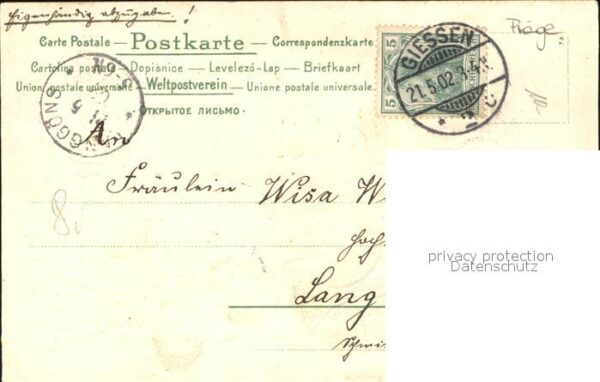 Eigenhändig abzugeben!
Präge
Carte Postale — Postkarte — Correspondenzkarte
Cartolina postale — Dopisnice — Levelező-Lap — Briefkaart
Union postale universelle — Weltpostverein — Unione postale universale.
ОТКРЫТОЕ ПИСЬМО
5 5
GIESSEN
21.5.02. 3
LANGGÖNS
An
Fräulein Wisa W
Lang
privacy protection
Datenschutz